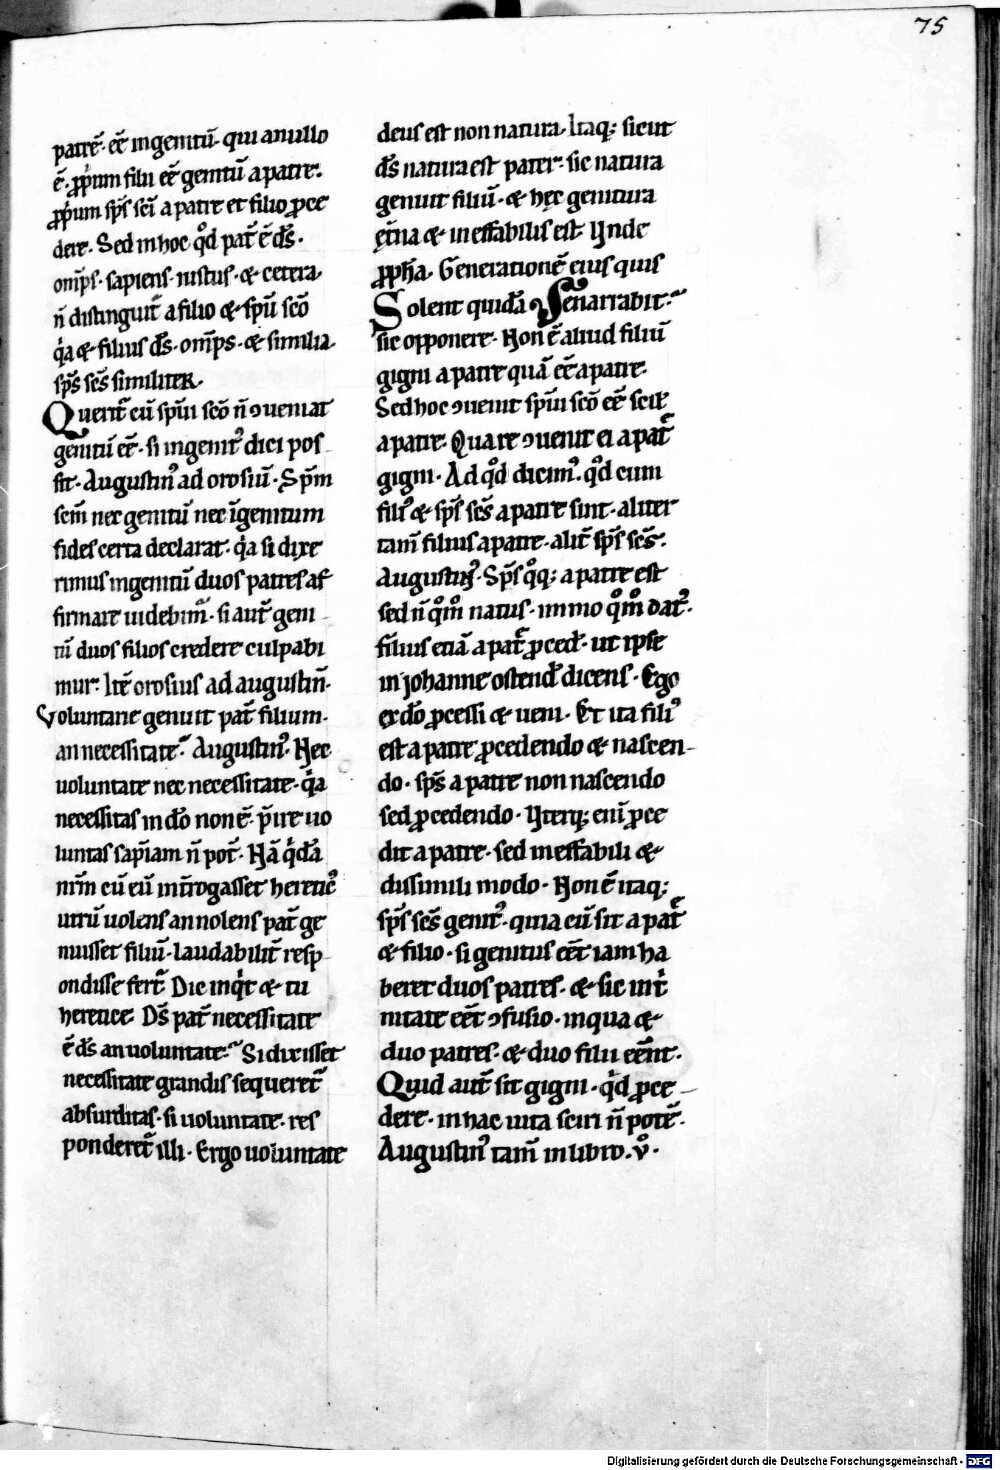 75
patrē. eē ingenitū. qui a nullo
ē. ꝓpium filii eē genitū a patre.
ꝓpium sp̄s sc̄i a patre et filio ꝓce
dere. Sed in hoc qd̊ pat̄ ē ds̄.
om̄ps. sapiens. iustus. & cetera.
n̄ distinguit᷑ a filio & spū scō
qͥa & filius ds̄. om̄ps. & similia.
sp̄s sc̄s similiter.
Querit᷑ cū spūi scō n̄ ꝯueniat
genitū eē. si ingenitꝰ dici pos
sit. Augustinꝰ ad orosiū. Sp̄m
sc̄m nec genitū nec īgenitum
fides certa declarat. qͥa si dixe
rimus ingenitū duos patres af
firmare uidebim᷑. si aut̄ geni
tū duos filios credere culpabi
mur. Itē orosius ad augustin̄.
Voluntate genuit pat̄ filium.
an necessitate. Augustinꝰ. Nec
uoluntate nec necessitate. qͥa
necessitas in dō non ē. p̄ire uo
luntas sapīam n̄ pot̄. Nā qͥdā
nr̄m cū eū int̄rogasset hereticꝰ
utrū uolens an nolens pat̄ ge
nuisset filiū. laudabilit̄ resp
ondisse fert᷑. Dic inqͥt & tu
heretice. Ds̄ pat̄ necessitate
ē ds̄ an uoluntate. Si dixisset
necessitate grandis sequeret᷑
absurditas. si uoluntate. res
ponderet᷑ illi. Ergo uoluntate
deus est non natura. Itaq; sicut
ds̄ natura est pater. sic natura
genuit filiū. & hęc genitura
ęt̄na & ineffabilis est. Unde
ꝓph̄a. Generationē eius quis
Solent quidā ꝯ enarrabit.
sic opponere. Non ē aliud filiū
gigni a patre quā eē a patre.
Sed hoc ꝯuenit spūi scō eē scił
a patre. Quare ꝯuenit ei a pat̄
gigni. Ad qd̊ dicimꝰ. qd̊ cum
filiꝰ & sp̄s sc̄s a patre sint. aliter
tam̄ filius a patre. alit̄ sp̄s sc̄s.
Augustinꝰ. Sp̄s qͦq; a patre est
sed n̄ qͦm̊ natus. immo qͦm̊ datꝰ.
filius etiā a pat̄ ꝓced̄. ut ipse
in johanne ostend̄ dicens. Ego
ex dō ꝓcessi & ueni. Et ita filiꝰ
est a patre ꝓcedendo & nascen-
do. sp̄s a patre non nascendo
sed ꝓcedendo. Uterq; enī ꝓce
dit a patre. sed ineffabili &
dissimili modo. Non ē itaq;
sp̄s sc̄s genitꝰ. quia cū sit a pat̄
& filio. si genitus eēt iam ha
beret duos patres. & sic int̄
nitate eēt ꝯfusio. in qua &
duo patres. & duo filii eēnt.
Quid aut̄ sit gigni. qͥd ꝓce
dere. in hac uita sciri n̄ potē.
Augustinꝰ tam̄ in libro. v̊.
Digitalisierung gefördert durch die Deutsche Forschungsgemeinschaft - DFG